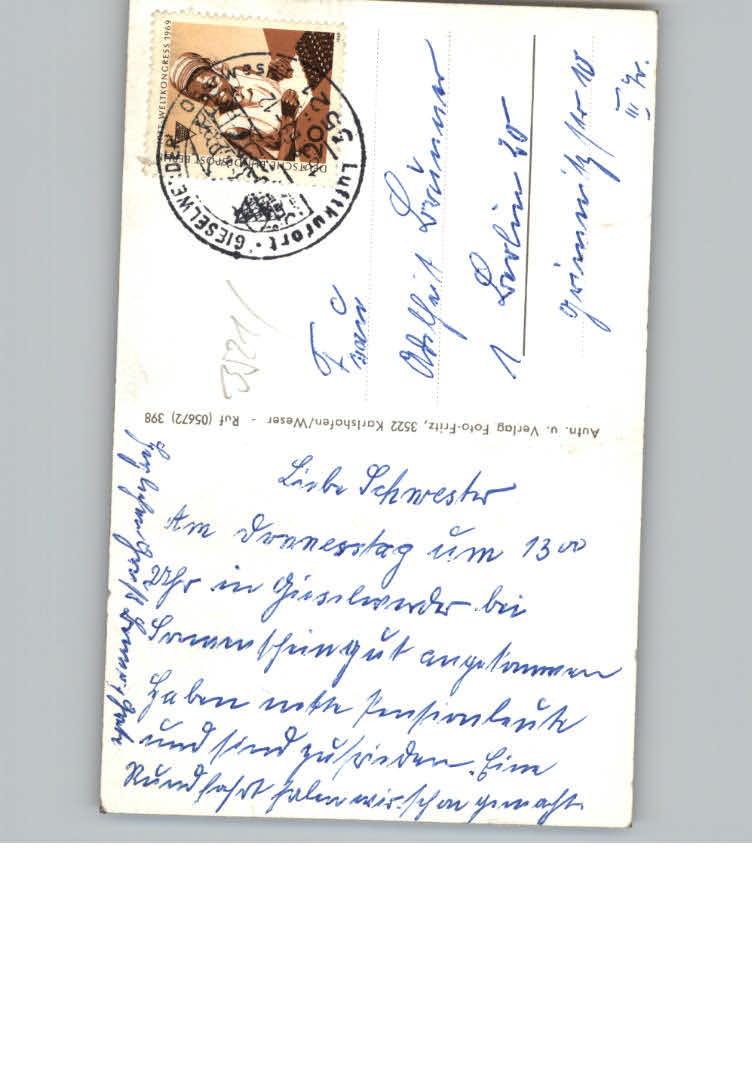 WELTKONGRESS 1969
DEUTSCHE BUNDESPOST BERLIN
20
3521
Luftkurort · GIESELWERDER
3521/
Frau
Adelheit
1 Berlin 20
Grimnitzstr 10
III Tr.
Aufn. u. Verlag Foto-Fritz, 3522 Karlshafen/Weser - Ruf (05672) 398
Liebe Schwester
Am Donnesstag um 13 00
Uhr in Gieselwerder bei
Sonnenschein gut angekommen
Haben nette Pensionleute
und sind zufrieden. Eine
Rundfahrt haben wir schon gemacht.
Herzlichen Gruß